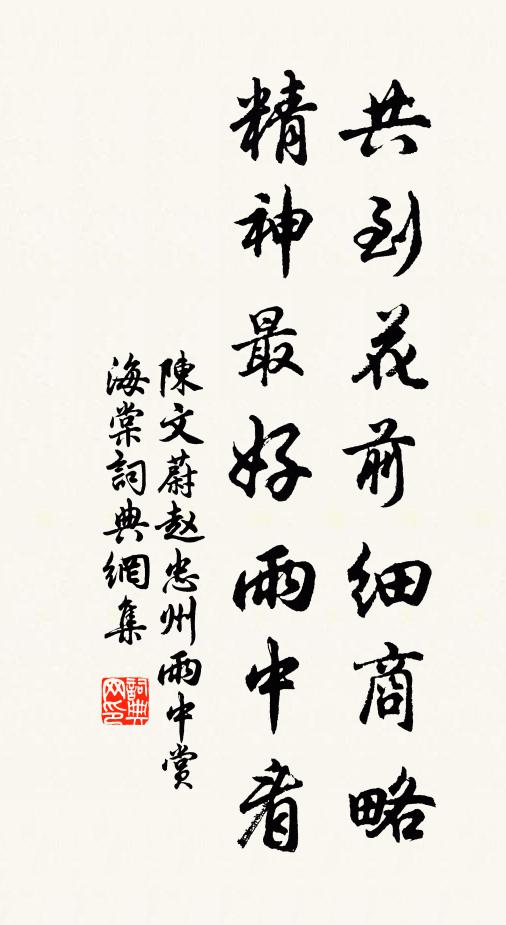 共到花前細商略
精神最好雨中看
陳文蔚趙忠州雨中賞
海棠詞典網集
詞典網印